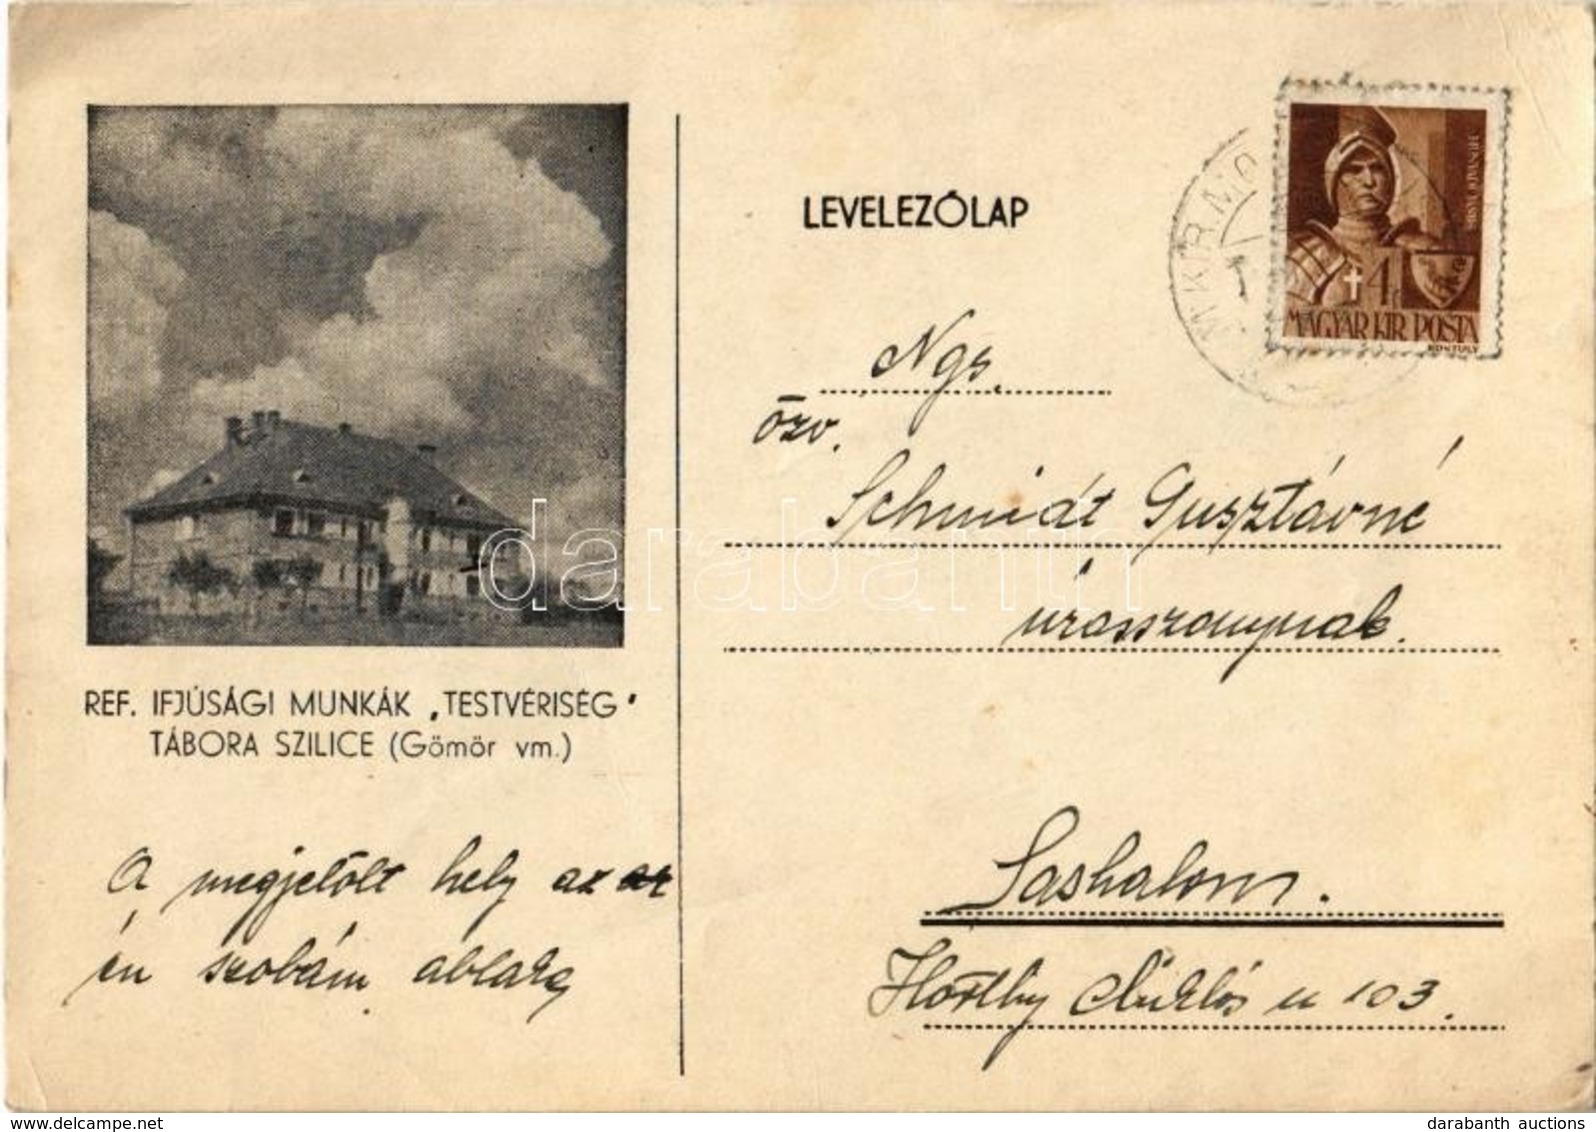 REF. IFJÚSÁGI MUNKÁK „TESTVÉRISÉG"
TÁBORA SZILICE (Gömör vm.)
A megjelölt hely az
én szobám ablaka
LEVELEZŐLAP
HUNYADI JÁNOS
4f
MAGYAR KIR. POSTA
KONTULY
M. KIR. MO
Ngs.
özv.
Schmidt Gusztávné
úrasszonynak.
Sashalom.
Horthy Miklós u 103.
darabanth
www.delcampe.net
darabanth auctions